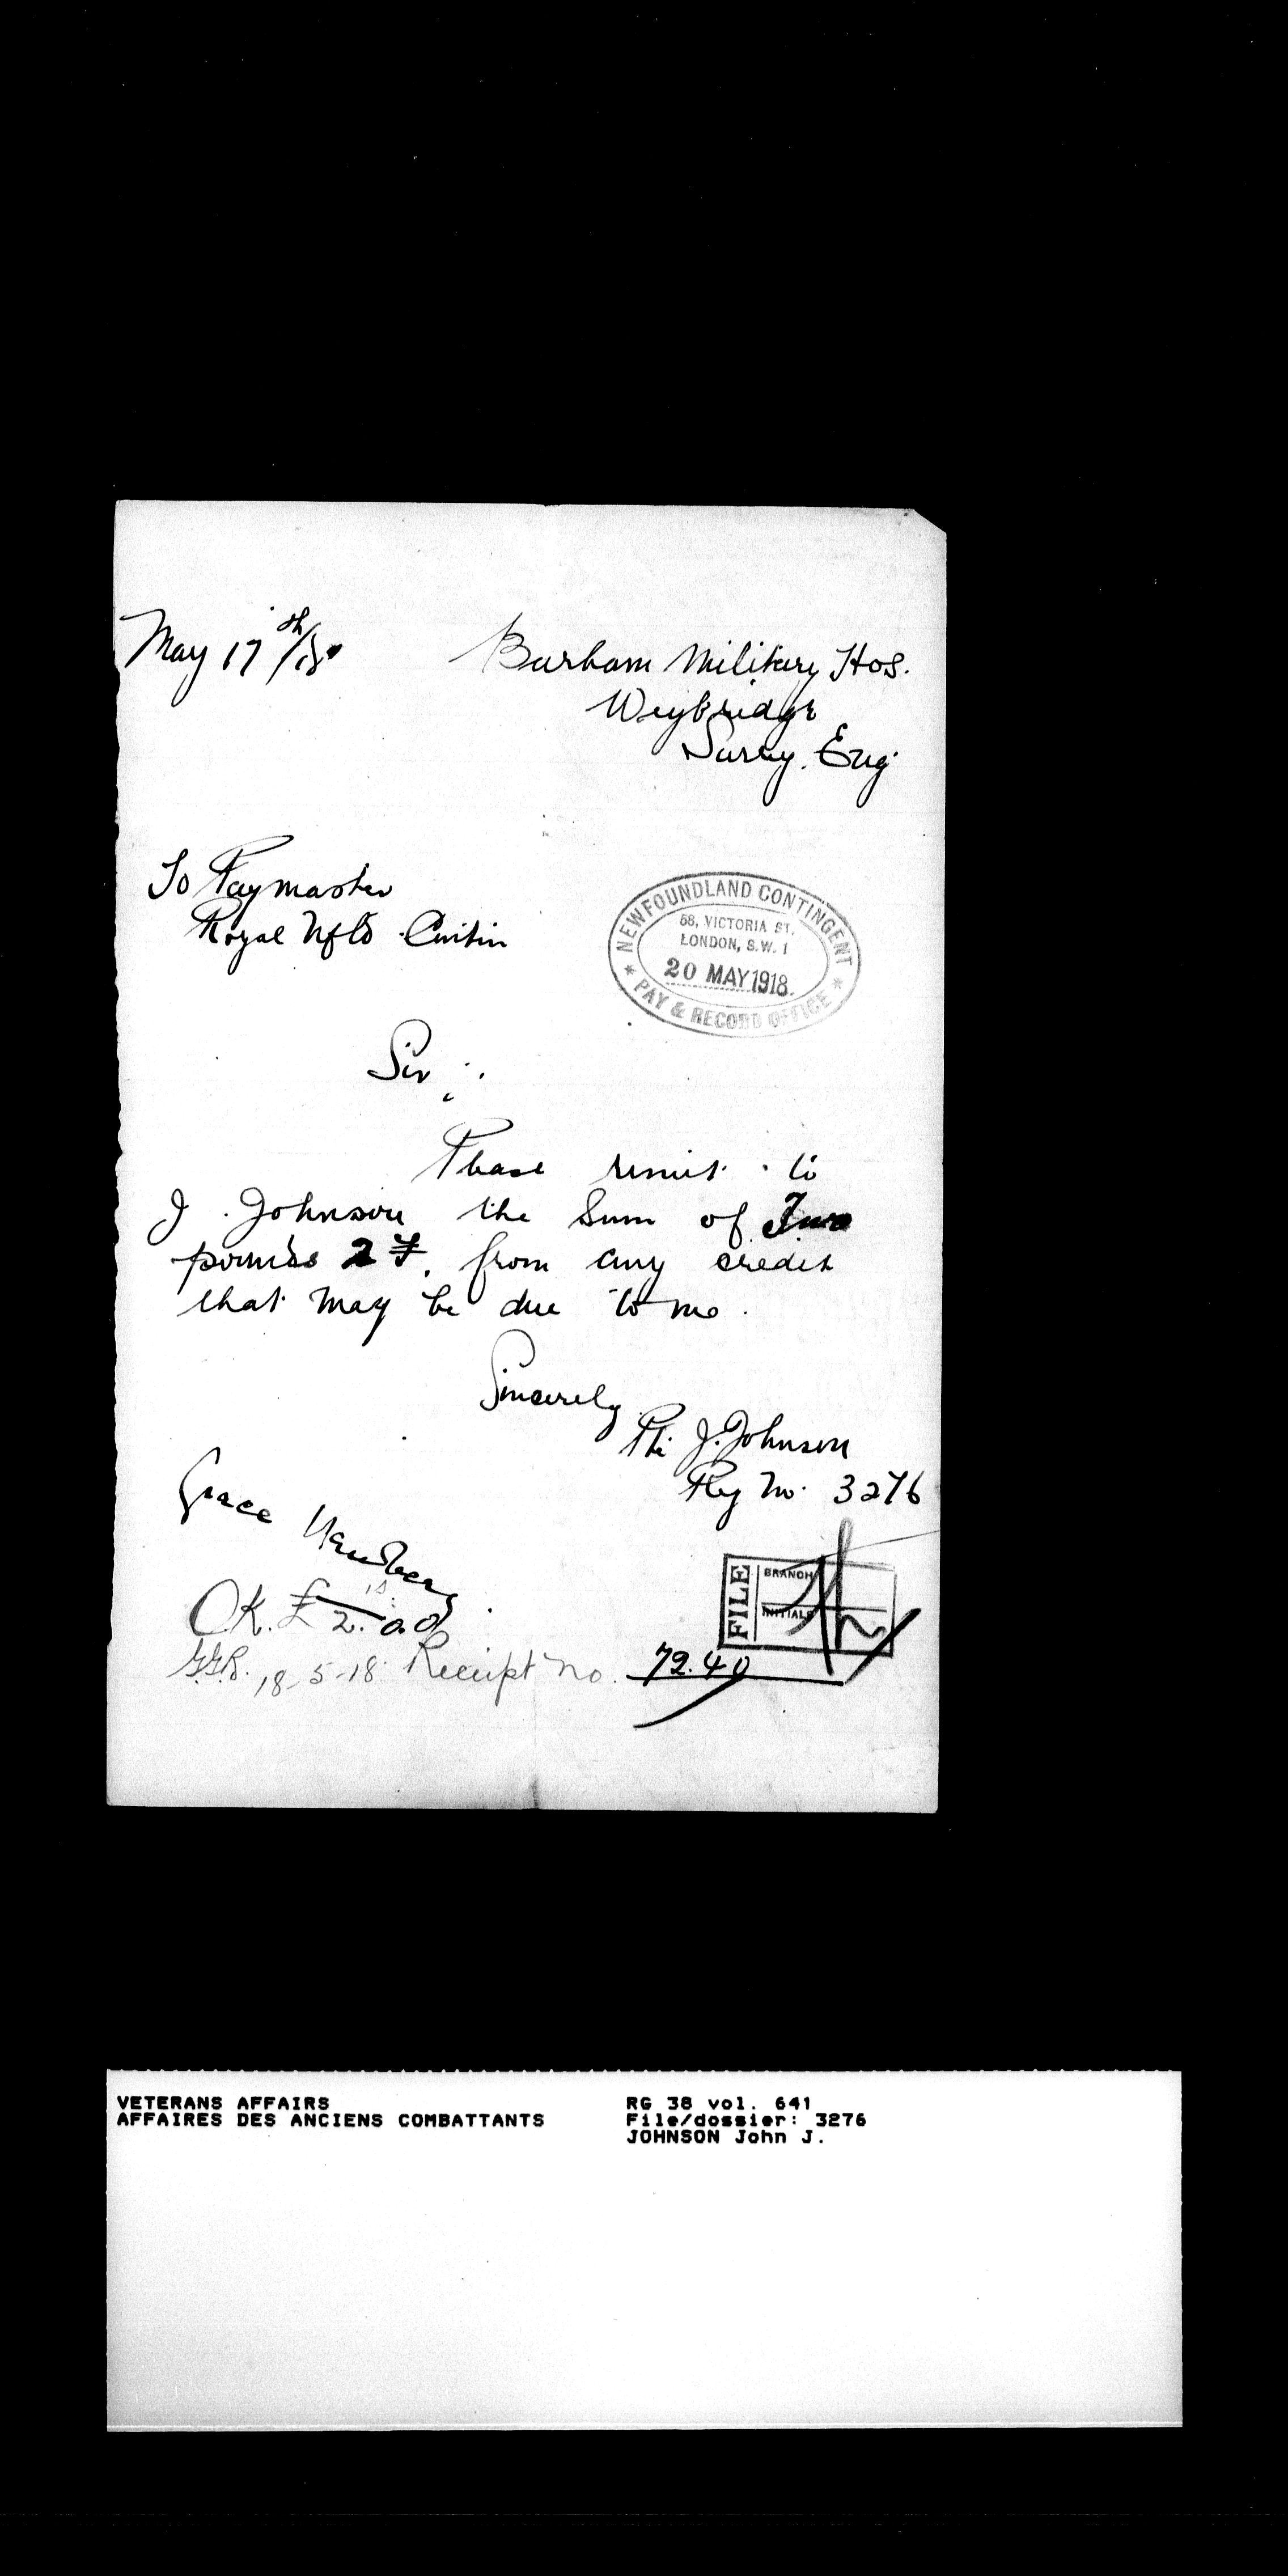 May 17th/18
Burham Military Hos.
Weybridge
Surry. Eng.
To Paymaster
Royal Nfld
NEWFOUNDLAND CONTINGENT
58, VICTORIA ST.
LONDON, S.W. 1
20 MAY 1918.
* PAY & RECORD OFFICE *
Sir :.
Please remit to
J. Johnson the Sum of Two
pounds 2 £. from any credit
that may be due to me.
Sincerely
Pte J. Johnson
Reg No. 3276
Grace
FILE
BRANCH
INITIALS
OK. £2.0.0
18-5-18 Receipt No. 7240
VETERANS AFFAIRS
AFFAIRES DES ANCIENS COMBATTANTS
RG 38 vol. 641
File/dossier: 3276
JOHNSON John J.